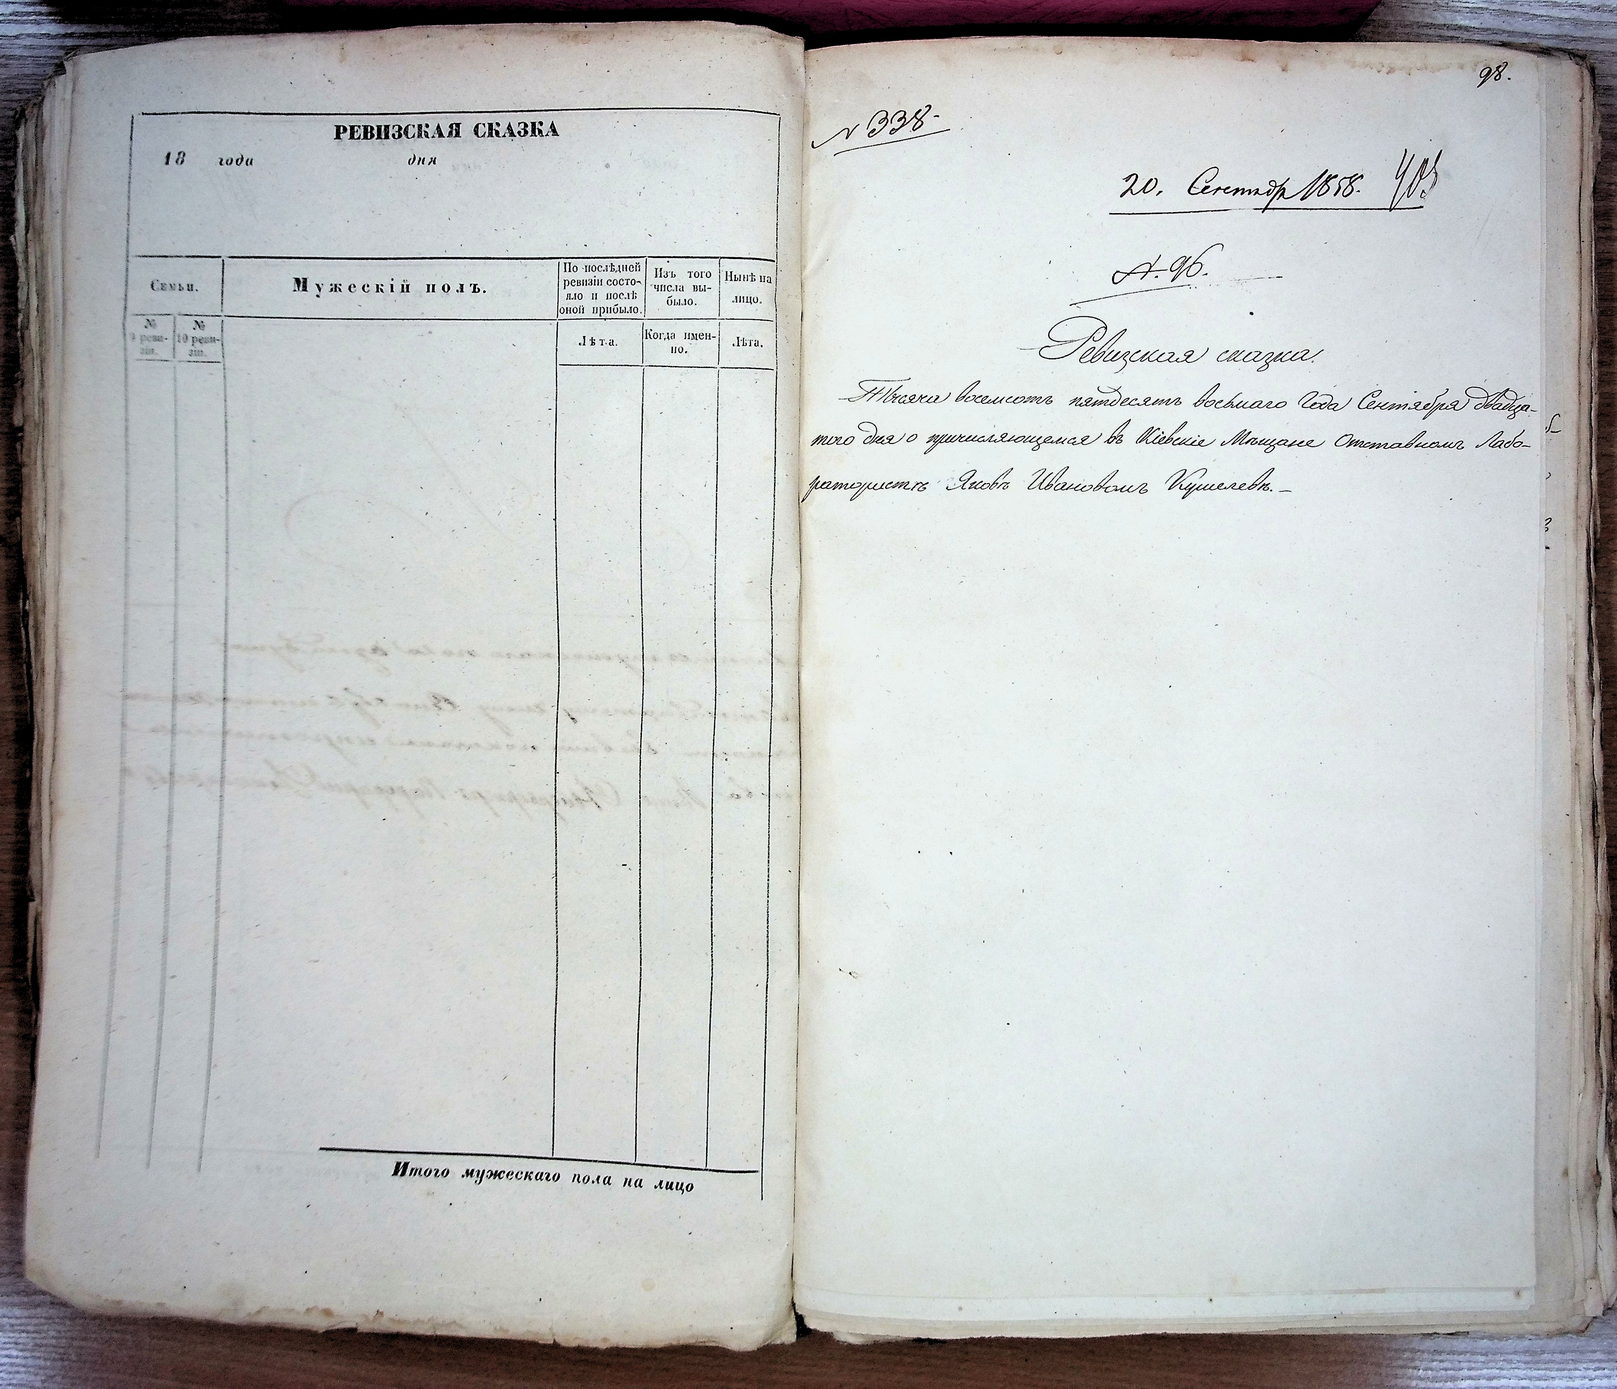 РЕВИЗСКАЯ СКАЗКА
18 года дня
Семьи.
Мужескій полъ.
По послѣдней
ревизіи состо-
яло и послѣ
оной прибыло.
Изъ того
числа вы-
было.
Нынѣ на
лицо.
№
9 реви-
зіи.
№
10 реви-
зіи.
Лѣта.
Когда имен-
но.
Лѣта.
Итого мужескаго пола на лицо
98.
№ 338
20. Сентябр 1858. 403
№ 96.
Ревизская сказка.
Тысяча восемсотъ пятдесятъ восьмаго Года Сентября двадца-
таго дня о причисляющемся въ Кіевскіе Мѣщане Отставномъ Лабо-
ратористѣ Яковѣ Ивановомъ Кушелевѣ.